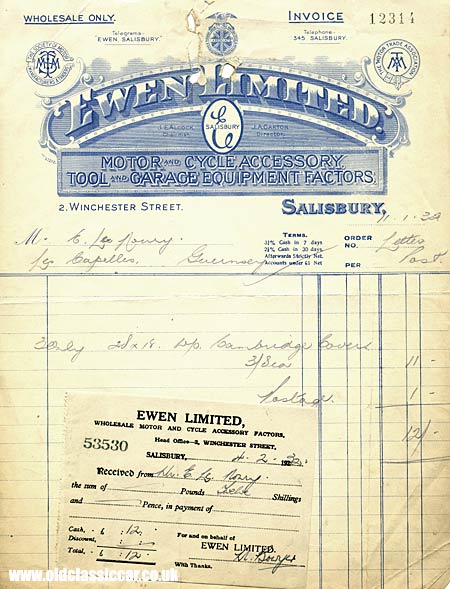 WHOLESALE ONLY.
INVOICE
12314
Telegrams-
"EWEN SALISBURY."
Telephone-
345 SALISBURY.
EWEN LIMITED.
J.E. ALCOCK,
SALISBURY
J.A. CAXTON
Director.
E
MOTOR AND CYCLE ACCESSORY
TOOL AND GARAGE EQUIPMENT FACTORS.
2. WINCHESTER STREET.
SALISBURY,
TERMS.
3¾% Cash in 7 days
2½% Cash in 30 days
Afterwards Strictly Net
Accounts under £1 Net
ORDER NO. Letter
PER Post
Mr. E.
Capelles, Guernsey
3 only 28 x 1½ D/p. Cambridge Covers
3/8 ea 11 -
Postage. 1 -
12/-
EWEN LIMITED,
WHOLESALE MOTOR AND CYCLE ACCESSORY FACTORS,
Head Office-2, WINCHESTER STREET,
53530
SALISBURY, 4.2.
Received from Mr. E.
the sum of Pounds Twelve Shillings
and Pence, in payment of
Cash, £ :12.
Discount, : :
Total, £ :12.
For and on behalf of
EWEN LIMITED.
With Thanks,
www.oldclassiccar.co.uk